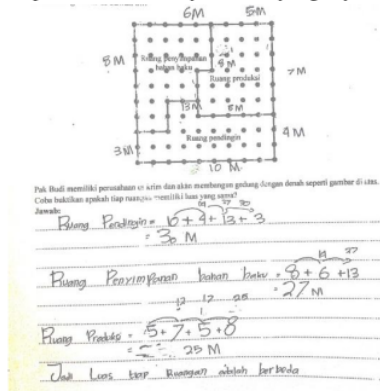 6M 5M
8M Ruang penyimpanan bahan baku 8M 7M
Ruang produksi
13M 5M
Ruang pendingin 4M
3M
10 M
Pak Budi memiliki perusahaan es krim dan akan membangun gudang dengan denah seperti gambar di atas.
Coba buktikan apakah tiap ruangan memiliki luas yang sama?
Jawab:
Ruang Pendingin = 10 + 4 + 13 + 3
= 30 M
19 27
Ruang Penyimpanan bahan baku = 8 + 6 + 13
= 27 M
12 17 25
Ruang Produksi = 5 + 7 + 5 + 8
= 25 M
Jadi Luas tiap Ruangan adalah berbeda